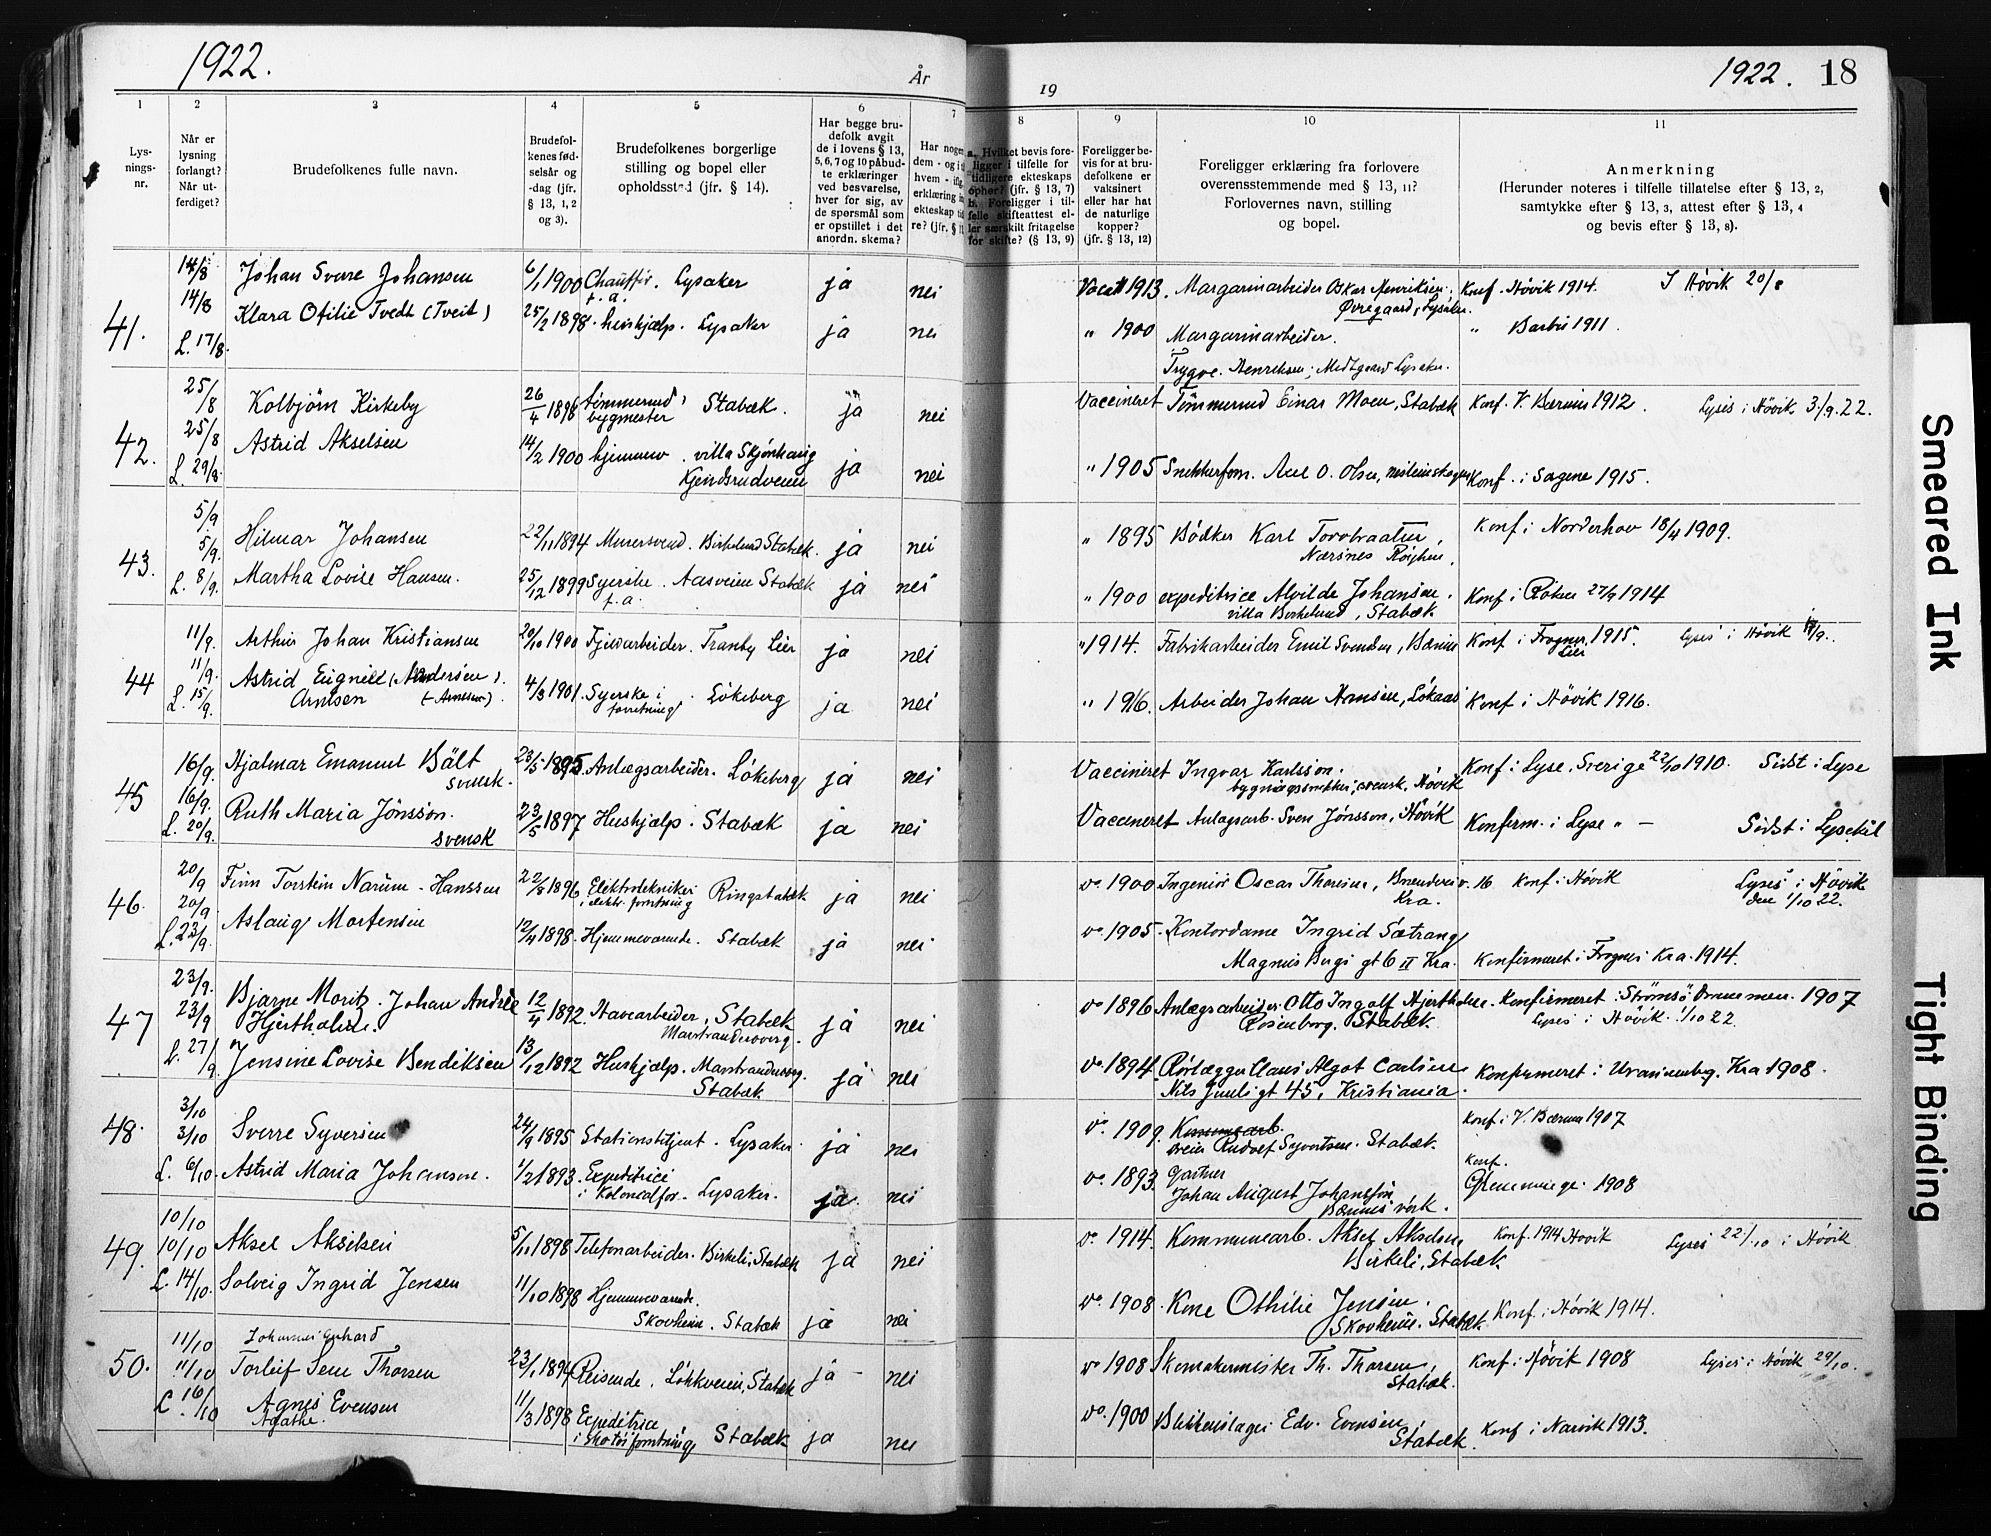 1922.
År
19
1922. 18
1 2 3 4 5 6 7 8 9 10 11
Lys-
nings-
nr.
Når er
lysning
forlangt?
Når ut-
ferdiget?
Brudefolkenes fulle navn.
Brudefol-
kenes fød-
selsår og
-dag (jfr.
§ 13, 1, 2
og 3).
Brudefolkenes borgerlige
stilling og bopel eller
opholdssted (jfr. § 14).
Har begge bru-
defolk avgit
de i lovens § 13,
5, 6, 7 og 10 påbud-
te erklæringer
ved besvarelse,
hver for sig, av
de spørsmål som
er opstillet i det
anordn. skema?
Har nogen
dem - og i ti
hvem - ifl.
erklæring in
ekteskap tid
re? (jfr. § 1
a. Hvilket bevis fore-
ligger i tilfelle for
tidligere ekteskaps
ophør? (jfr. § 13, 7)
b. Foreligger i til-
felle skifteattest el-
ler særskilt fritagelse
for skifte? (§ 13, 9)
Foreligger be-
vis for at bru-
defolkene er
vaksinert
eller har hat
de naturlige
kopper?
(jfr. § 13, 12)
Foreligger erklæring fra forlovere
overensstemmende med § 13, 11?
Forlovernes navn, stilling
og bopel.
Anmerkning
(Herunder noteres i tilfelle tillatelse efter § 13, 2,
samtykke efter § 13, 3, attest efter § 13, 4
og bevis efter § 13, 8).
41. 14/8 Johan Sverre Johansen 6/1 1900 Chauffør. Lysaker ja nei 1913. Margarinarbeider Oskar Henriksen. Konf. Hövik 1914. I Hövik 20/8
f.a. Øvregaard, Lysaker.
14/8 Klara Otilie Tvedt (Tveit) 25/2 1898. hushjælp. Lysaker ja nei " 1900 Margarinarbeider. " Barbu 1911.
L. 17/8. Trygve Henriksen, Lysaker.
42. 25/8 Kolbjörn Kirkeby 26/4 1896 tömmermd, Stabæk. ja nei Vaccineret Tömmermd Einar Moen, Stabæk Konf. V. Bærum 1912. Lyses i Hövik 3/9. 22.
bygmester
25/8 Astrid Akselsen 14/2 1900 hjemmev. villa Skjönhaug ja nei " 1905 Snekkerform. Axel O. Olsen, Konf. i Sagene 1915.
L. 29/8. Kjendsrudveien
43. 5/9 Hilmar Johansen 22/11 1894 Murersvend. Birkelund Stabæk. ja nei " 1895 Bödker Karl Torvbraaten, Konf. i Norderhov 18/4 1909.
Nærsnes Röyken.
5/9. Martha Lovise Hansen. 25/12 1899 Syerske. Aasveien Stabæk ja nei " 1900 expeditrice Alvilde Johansen. Konf. i Röken 27/9 1914
L. 8/9. f.a. villa Birkelund, Stabæk.
44 11/9. Arthur Johan Kristiansen 20/10 1900 Tranby Lier ja nei " 1914. Fabrikarbeider Emil Svendsen, Bærum Konf i Frogner, 1915. Lyses i Hövik
Lier
11/9. Astrid Eugnie (Andersen). 4/3 1901. Syerske i Lökeberg ja nei " 1916. Arbeider Johan Hansen, Konf i Hövik 1916.
L. 15/9. Arntsen (Arnesen). forretning
45 16/9. Hjalmar Emanuel Bält 23/5 1895. Anlægsarbeider. Lökeberg ja nei Vaccineret Ingvar Karlsson. Konf i Lyse, Sverige 22/10 1910. Sidst i Lyse
svensk. bygningssnekker, svensk, Hövik
16/9. Ruth Maria Jönsson. 23/5 1897 Hushjælp. Stabæk ja nei Vaccineret Anlagsarb. Sven Jönsson, Hövik Konferm. i Lyse " — Sidst i Lysekil
L. 20/9. svensk
46. 20/9 Finn Torstein Narum-Hanssen 22/8 1896 Elektrotekniker Ringstabæk ja nei vo 1900 Ingeniör Oscar Thoresen, v. 16 Konf. i Hövik Lyses i Hövik
i elektr. forretning Kra. den 1/10 22.
20/9. Aslaug Mortensen 12/4 1898. Hjemmeværende. Stabæk ja nei vo. 1905. Kontordame Ingrid Sætrang
L. 23/9. Magnus Bergs gt 6 II Kra. Konfirmeret i Frogner Kra. 1914.
47 23/9. Bjarne Moritz. Johan Andrèe 12/4 1892. Havearbeider, Stabæk ja nei vo 1896 Anlægsarbeider Otto Ingolf Hjertholm. Konfirmeret i Strömsö Drammen. 1907
23/9 Hjertholm. Marstrandersveg. Rosenborg. Stabæk. Lyses i Hövik. 1/10 22.
L. 27/9 Jensine Lovise Bendiksen 13/12 1892 Hushjælp. Marstrandersveg. ja nei vo 1894. Rörlægger Claus Algot Carlsen Konfirmeret i Uranienborg. Kra 1908.
Stabæk. Nils Juuls gt 45, Kristiania.
48. 3/10 Sverre Syversen 24/9 1895 Stationsbetjent. Lysaker. ja nei vo. 1909. Kommunearb. Konf i V. Bærum 1907
3/10 Rudolf Syvertsen. Stabæk.
L. 6/10. Astrid Maria Johansson. 1/2 1893. Expeditrice ja nei vo. 1893. Gartner Konf.
i Kolonialfor. Lysaker. Johan August Johansson Glemminge. 1908
Bærums verk.
49. 10/10 Aksel Akselsen 5/11 1898 Telefonarbeider. Birkeli, Stabæk ja nei vo. 1914. Kommunearb. Aksel Akselsen Konf. 1914 Hövik Lyses 22/10 i Hövik
10/10 Birkeli, Stabæk
L. 14/10. Solveig Ingrid Jensen 11/10 1898 Hjemmeværende. ja nei vo. 1908. Kone Othilie Jensen. Konf. i Hövik 1914.
Skovheim. Stabæk Skovheim. Stabæk
50. 11/10 Johannes Gerhard
11/10 Torleif Sem Thorsen 23/1 1894 Reisende. Lökkeveien, Stabæk ja — nei vo 1908 Skomakermester Th. Thorsen, Konf. i Hövik 1908 Lyses i Hövik 29/10.
Stabæk.
L. 16/10 Agnes Evensen 11/3 1898 Expeditrice ja nei vo. 1900 Blikkenslager Edv. Evensen Konf i Narvik 1913.
Agathe. i Skotöiforretning Stabæk Stabæk.
Smeared Ink
Tight Binding